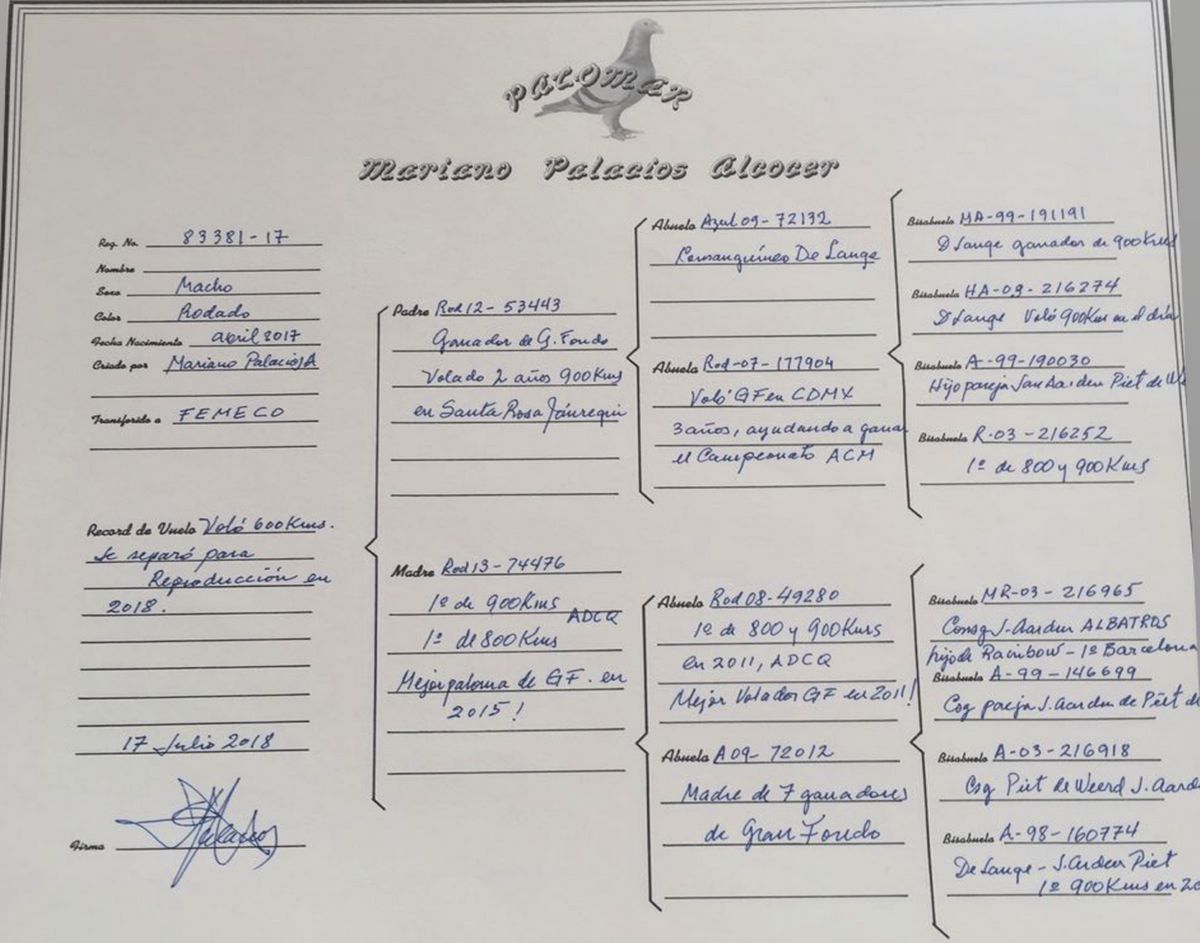 PALOMAR
Mariano Palacios Alcocer
Reg. No. 83381-17
Nombre
Sexo Macho
Color Rodado
Fecha Nacimiento abril 2017
Criado por Mariano Palacios A
Transferido a FEMECO
Record de Vuelo Voló 600 Kms.
Se separó para
Reproducción en
2018.
17 Julio 2018
Firma
Padre Rod 12-53443
Ganador de G. Fondo
Volado 2 años 900 Kms
en Santa Rosa Jáuregui
Madre Rod 13-74476
1º de 900 Kms ADCQ
1º de 800 Kms
Mejor paloma de GF. en
2015!
Abuelo Azul 09-72132
Consanguíneo De Lange
Abuela Rod-07-177904
Voló GF en CDMX
3 años, ayudando a ganar
el Campeonato ACM
Abuelo Rod 08-49280
1º de 800 y 900 Kms
en 2011, ADCQ
Mejor Volador GF en 2011!
Abuela A 09-72012
Madre de 7 ganadores
de Gran Fondo
Bisabuelo MA-99-191191
D Lange ganador de 900 Kms
Bisabuela HA-09-216274
D Lange Voló 900 Km en el día
Bisabuelo A-99-190030
Hijo pareja Jan Aarden Piet de
Bisabuela R-03-216252
1º de 800 y 900 Kms
Bisabuelo MR-03-216965
Consg J. Aarden ALBATROS
hijo de Rainbow - 1º Barcelona
Bisabuela A-99-146699
Csg pareja J. Aarden de Piet de
Bisabuelo A-03-216918
Csg Piet de Weerd J. Aard
Bisabuela A-98-160774
De Lange - J. Arden Piet
1º 900 Kms en 20